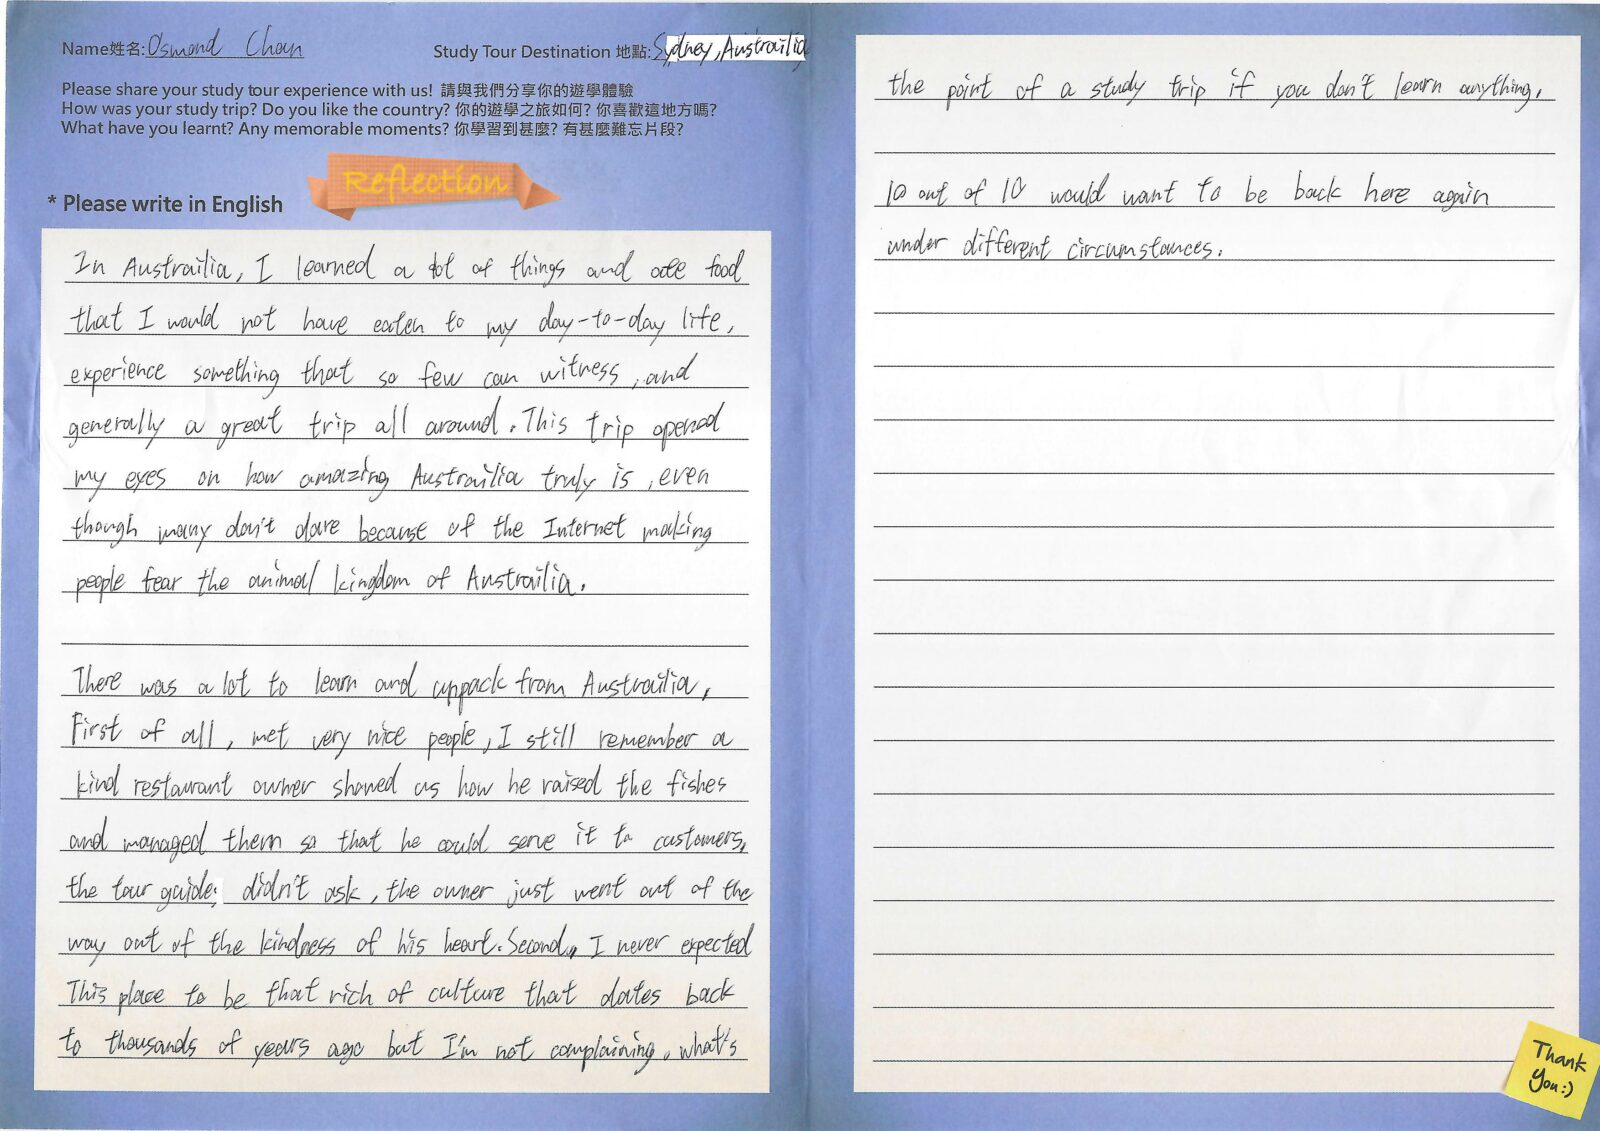 Name姓名: Osmond Chan
Study Tour Destination 地點: Sydney, Austrailia
Please share your study tour experience with us! 請與我們分享你的遊學體驗
How was your study trip? Do you like the country? 你的遊學之旅如何? 你喜歡這地方嗎?
What have you learnt? Any memorable moments? 你學習到甚麼? 有甚麼難忘片段?
Reflection
* Please write in English
In Austrailia, I learned a lot of things and ate food
that I would not have eaten to my day-to-day life,
experience something that so few can witness, and
generally a great trip all around. This trip opened
my eyes on how amazing Austrailia truly is, even
though many don't dare because of the Internet making
people fear the animal kingdom of Austrailia.
There was a lot to learn and uppack from Austrailia,
First of all, met very nice people, I still remember a
kind restaurant owner showed us how he raised the fishes
and managed them so that he could serve it to customers,
the tour guide; didn't ask, the owner just went out of the
way out of the kindness of his heart. Second, I never expected
This place to be that rich of culture that dates back
to thousands of years ago but I'm not complaining, what's
the point of a study trip if you don't learn anything.
10 out of 10 would want to be back here again
under different circumstances.
Thank
You :)